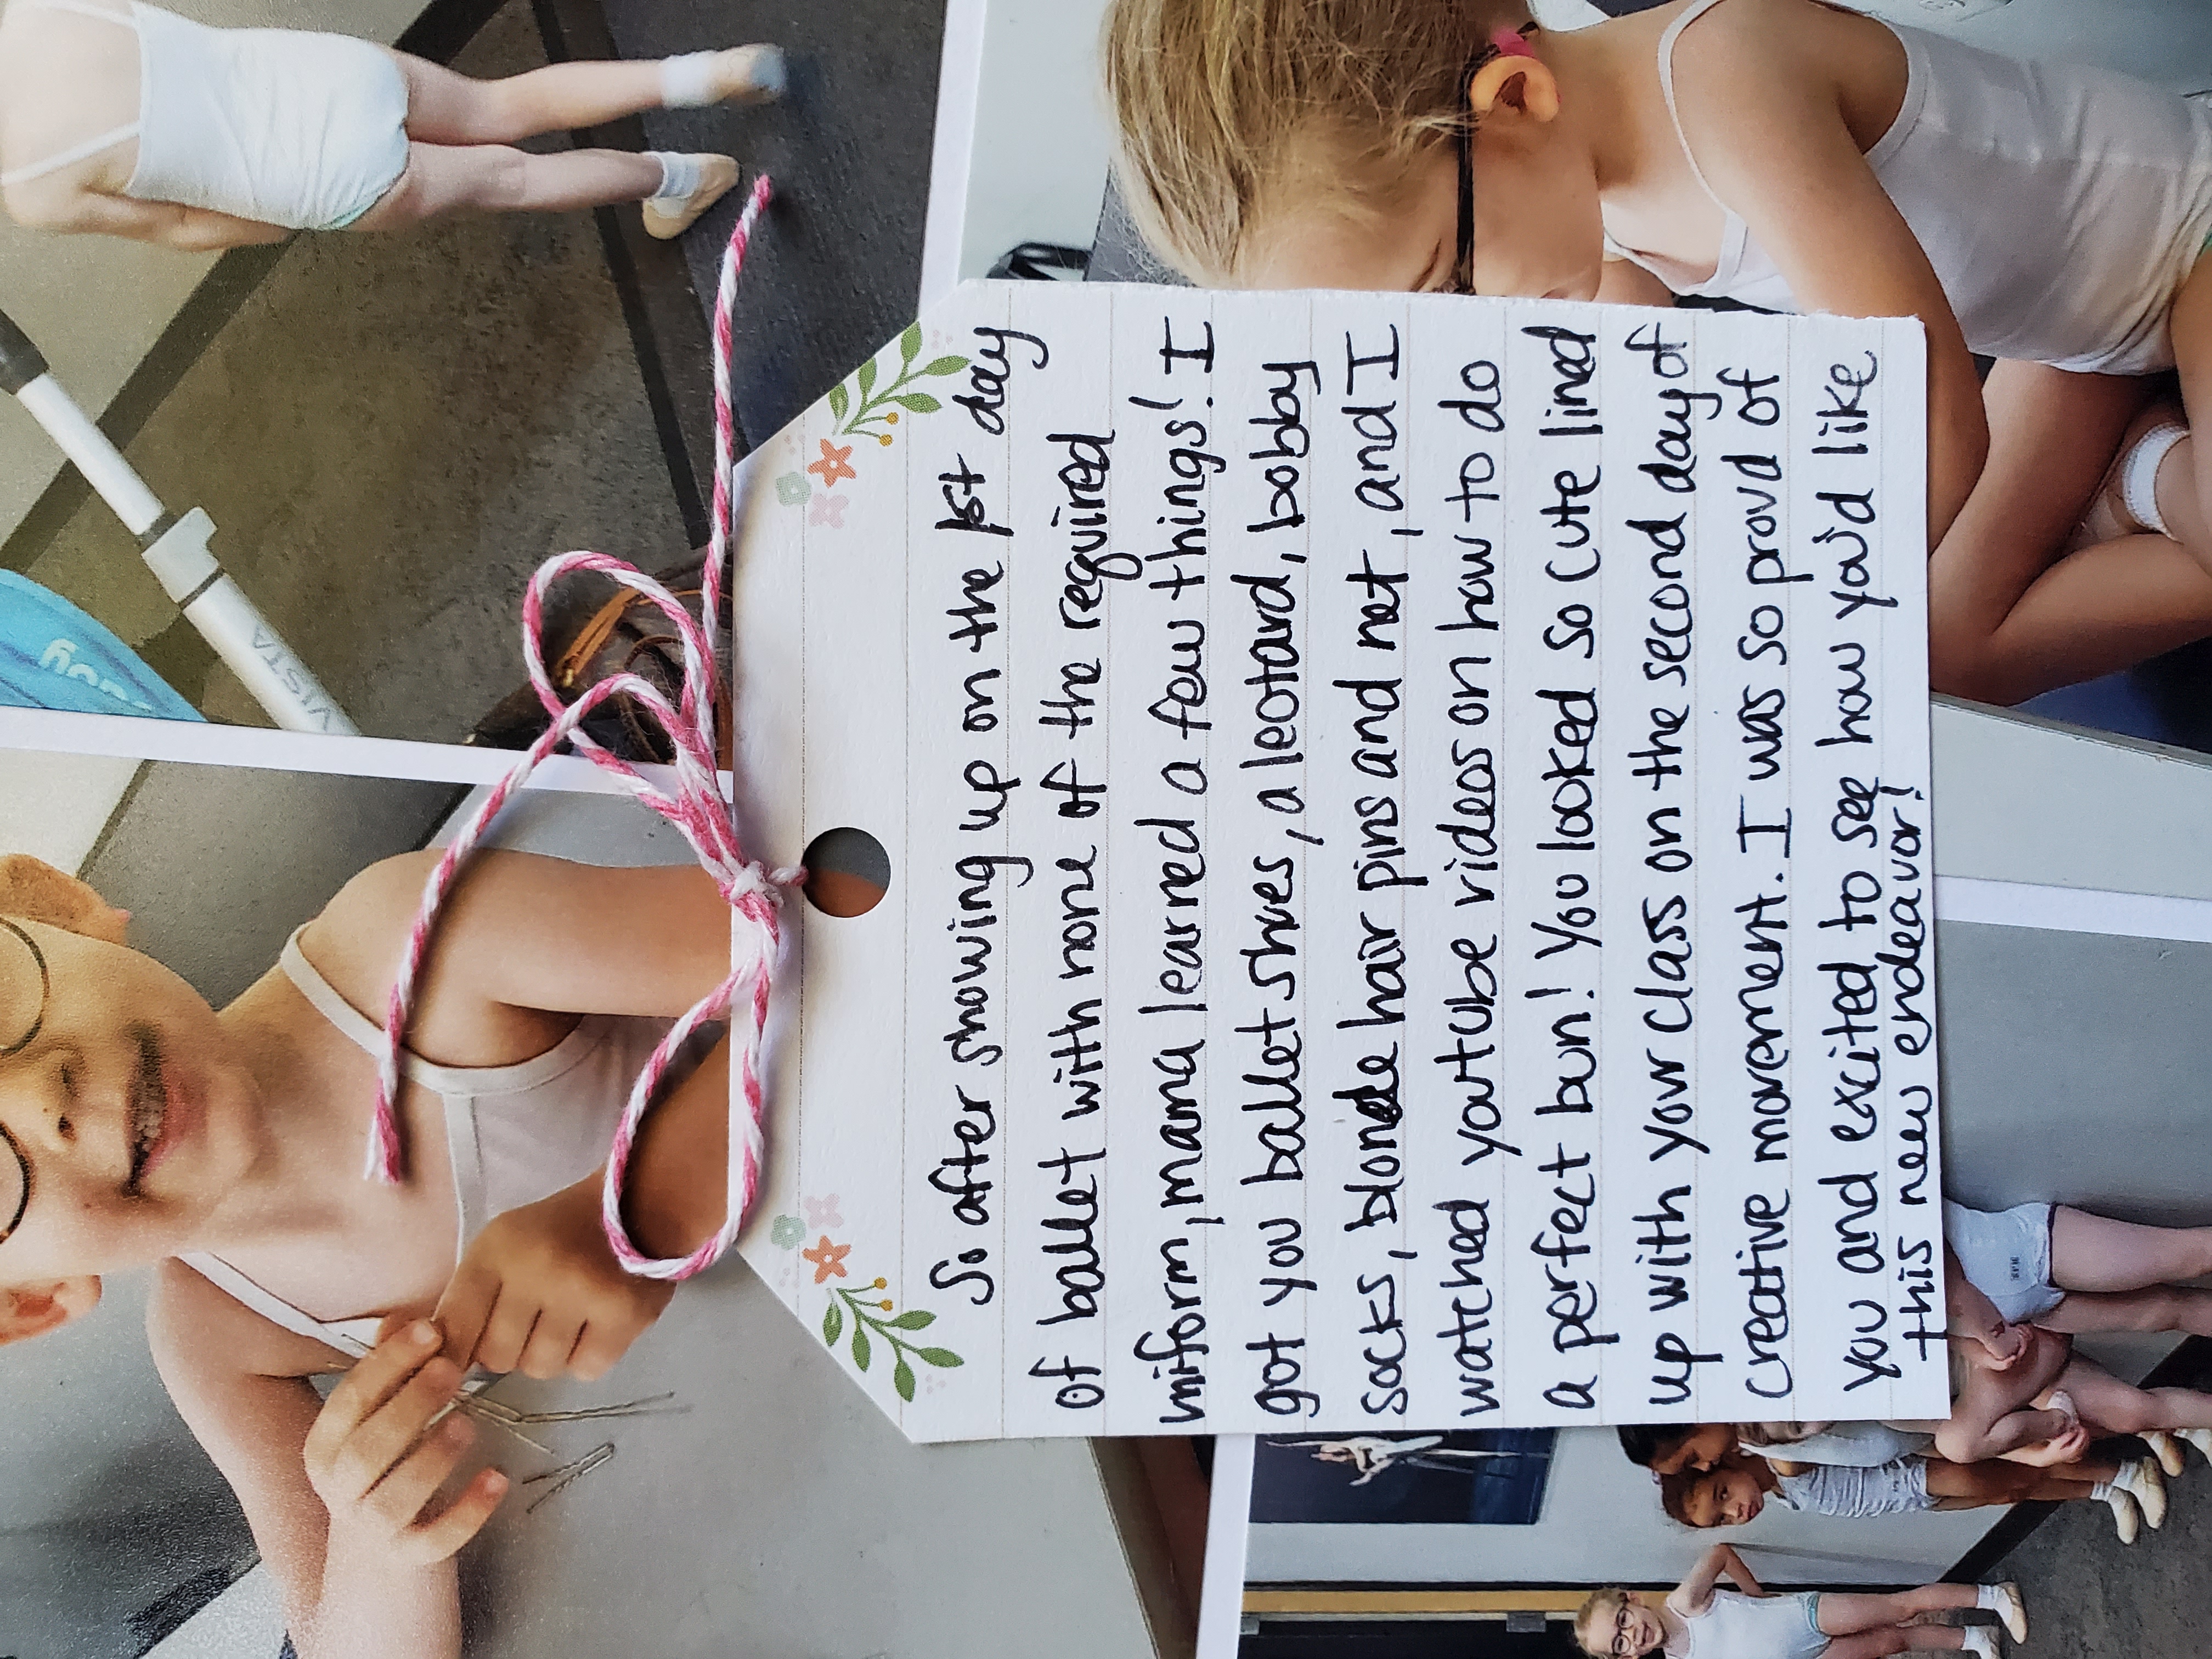 So after showing up on the 1st day
of ballet with none of the required
uniform, mama learned a few things! I
got you ballet shoes, a leotard, bobby
socks, blonde hair pins and net, and I
watched youtube videos on how to do
a perfect bun! You looked so cute lined
up with your class on the second day of
creative movement. I was so proud of
you and excited to see how you'd like
this new endeavor!
VISTA